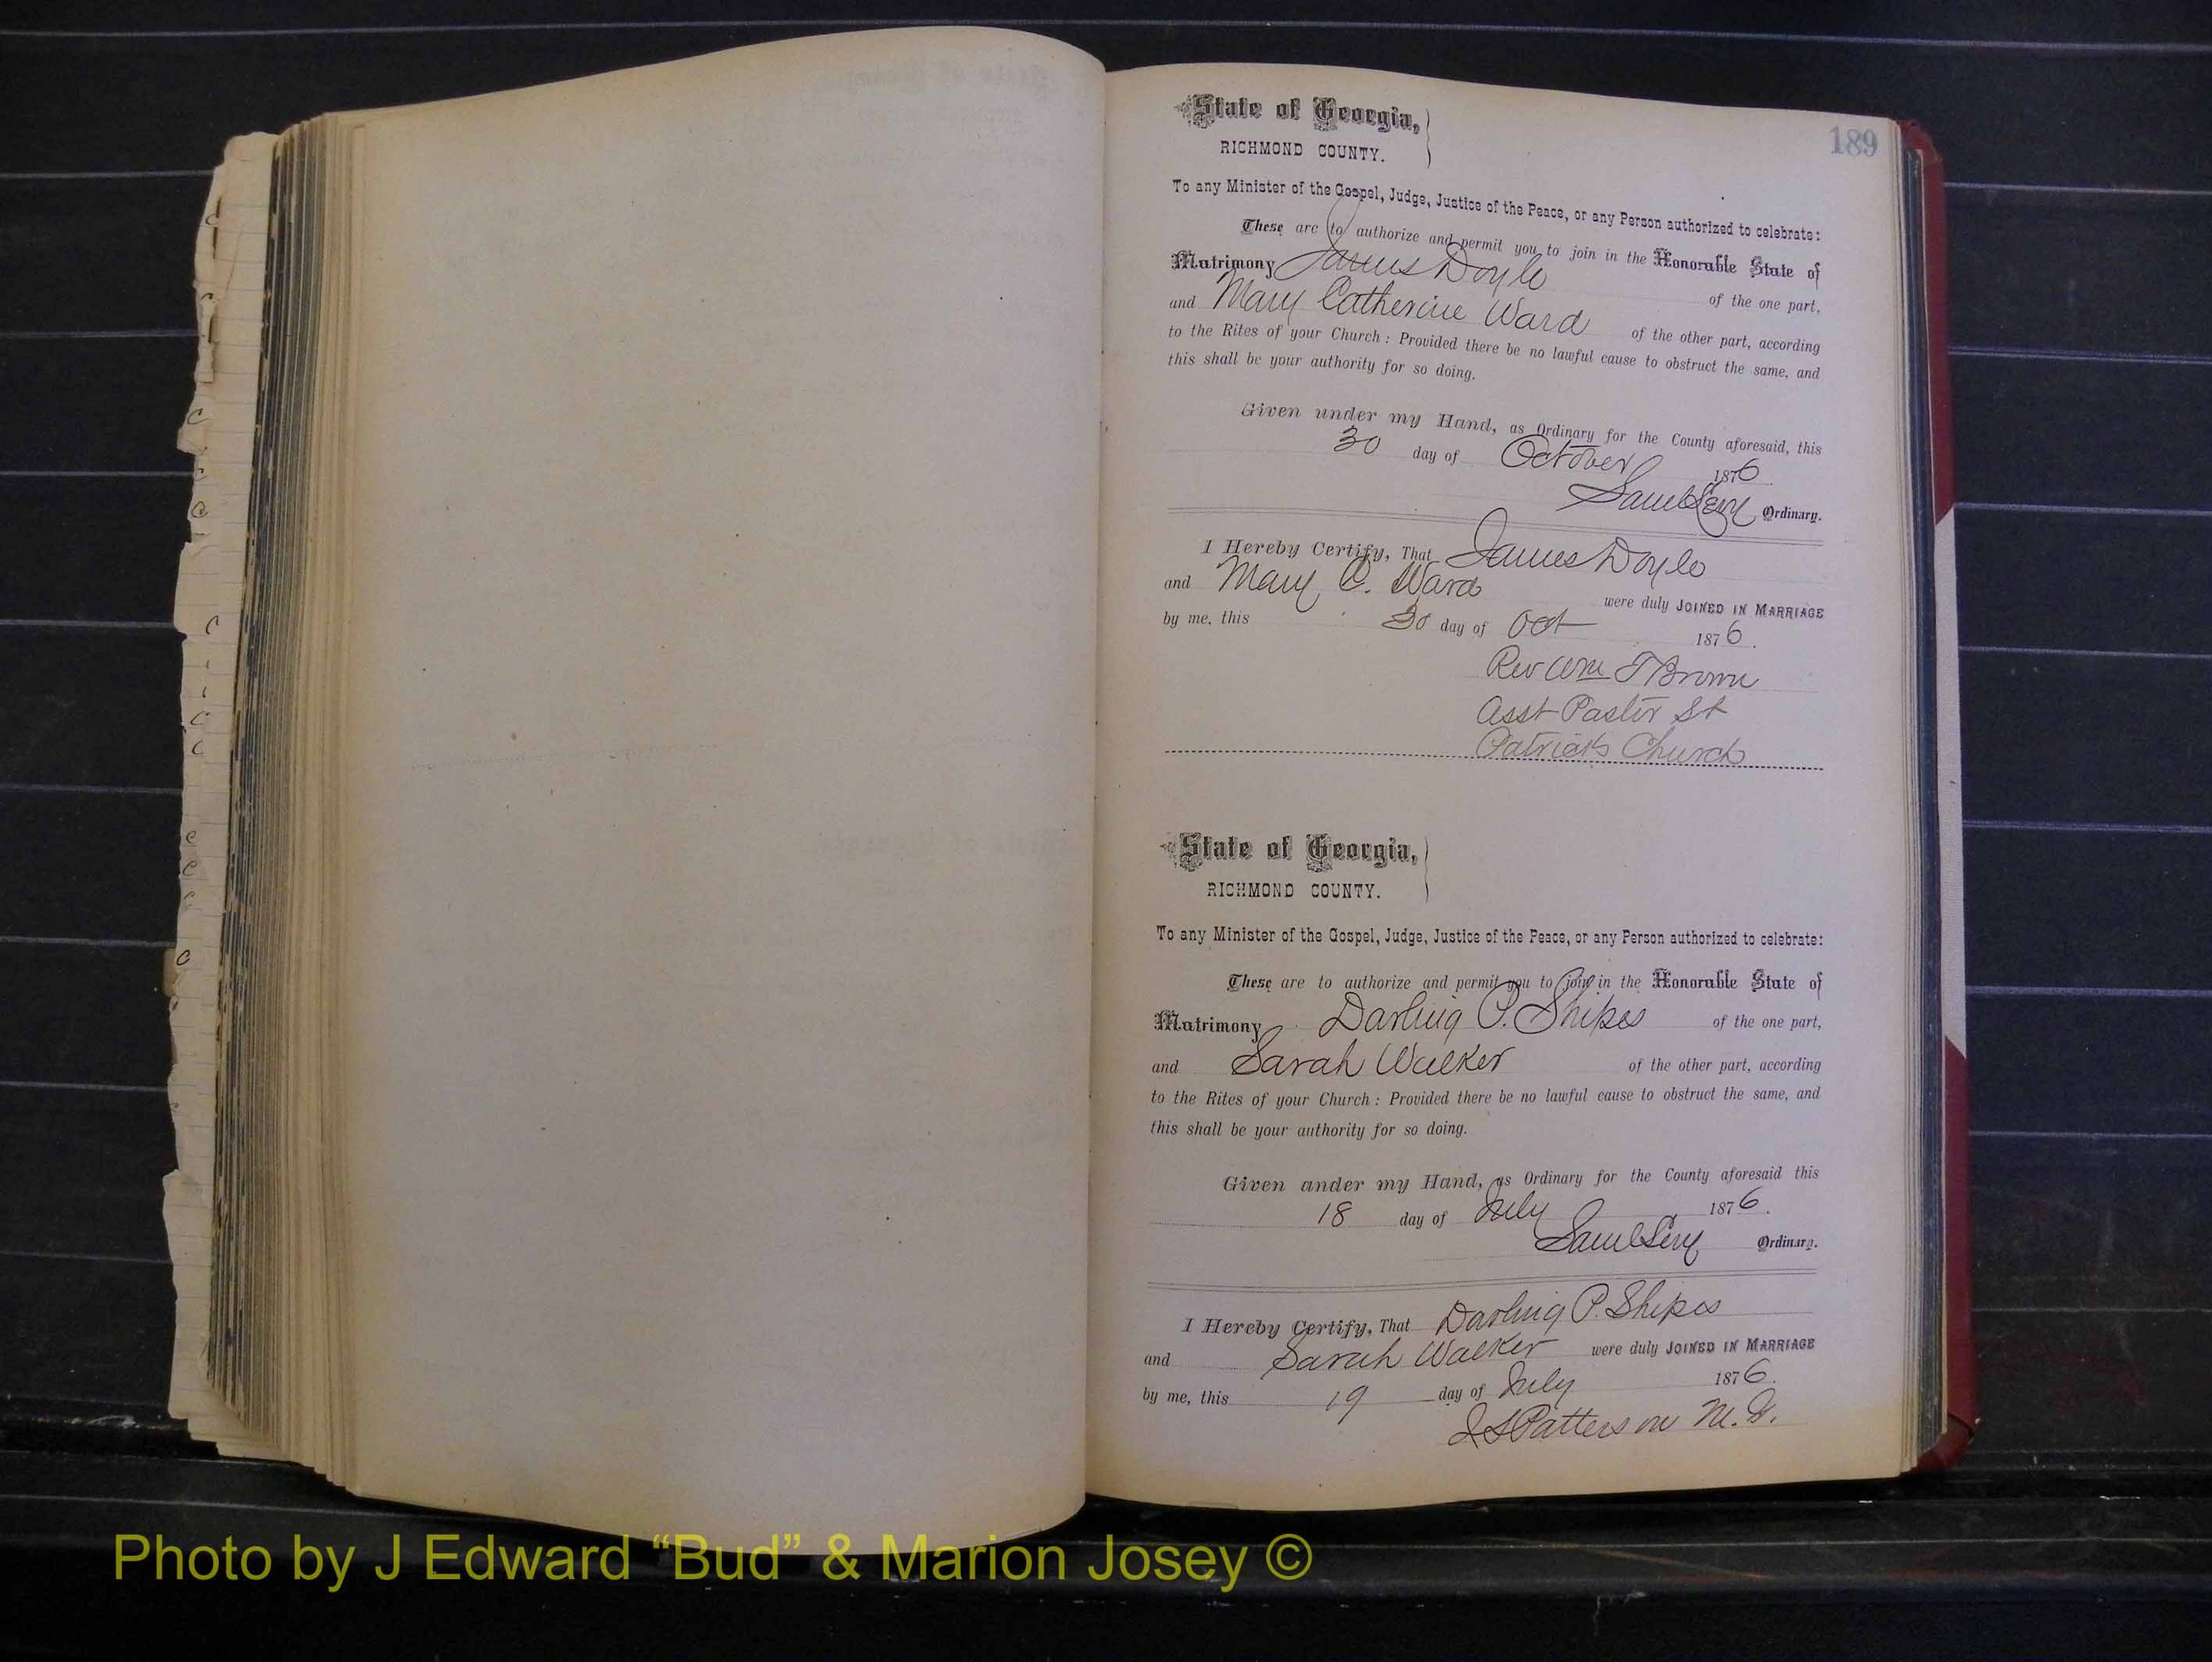 189
State of Georgia,
RICHMOND COUNTY.
To any Minister of the Gospel, Judge, Justice of the Peace, or any Person authorized to celebrate:
These are to authorize and permit you to join in the Honorable State of
Matrimony James Doyle of the one part,
and Mary Catherine Ward of the other part, according
to the Rites of your Church: Provided there be no lawful cause to obstruct the same, and
this shall be your authority for so doing.
Given under my Hand, as Ordinary for the County aforesaid, this
30 day of October 1876
Saml Levy Ordinary.
I Hereby Certify, That James Doyle
and Mary C. Ward were duly JOINED IN MARRIAGE
by me, this 30 day of Oct 1876.
Rev Wm T Brown
Asst Pastor St
Patricks Church
State of Georgia,
RICHMOND COUNTY.
To any Minister of the Gospel, Judge, Justice of the Peace, or any Person authorized to celebrate:
These are to authorize and permit you to join in the Honorable State of
Matrimony Darling P. Shipes of the one part,
and Sarah Walker of the other part, according
to the Rites of your Church: Provided there be no lawful cause to obstruct the same, and
this shall be your authority for so doing.
Given under my Hand, as Ordinary for the County aforesaid this
18 day of July 1876.
Saml Levy Ordinary.
I Hereby Certify, That Darling P. Shipes
and Sarah Walker were duly JOINED IN MARRIAGE
by me, this 19 day of July 1876.
Patterson M. G.
Photo by J Edward “Bud” & Marion Josey ©